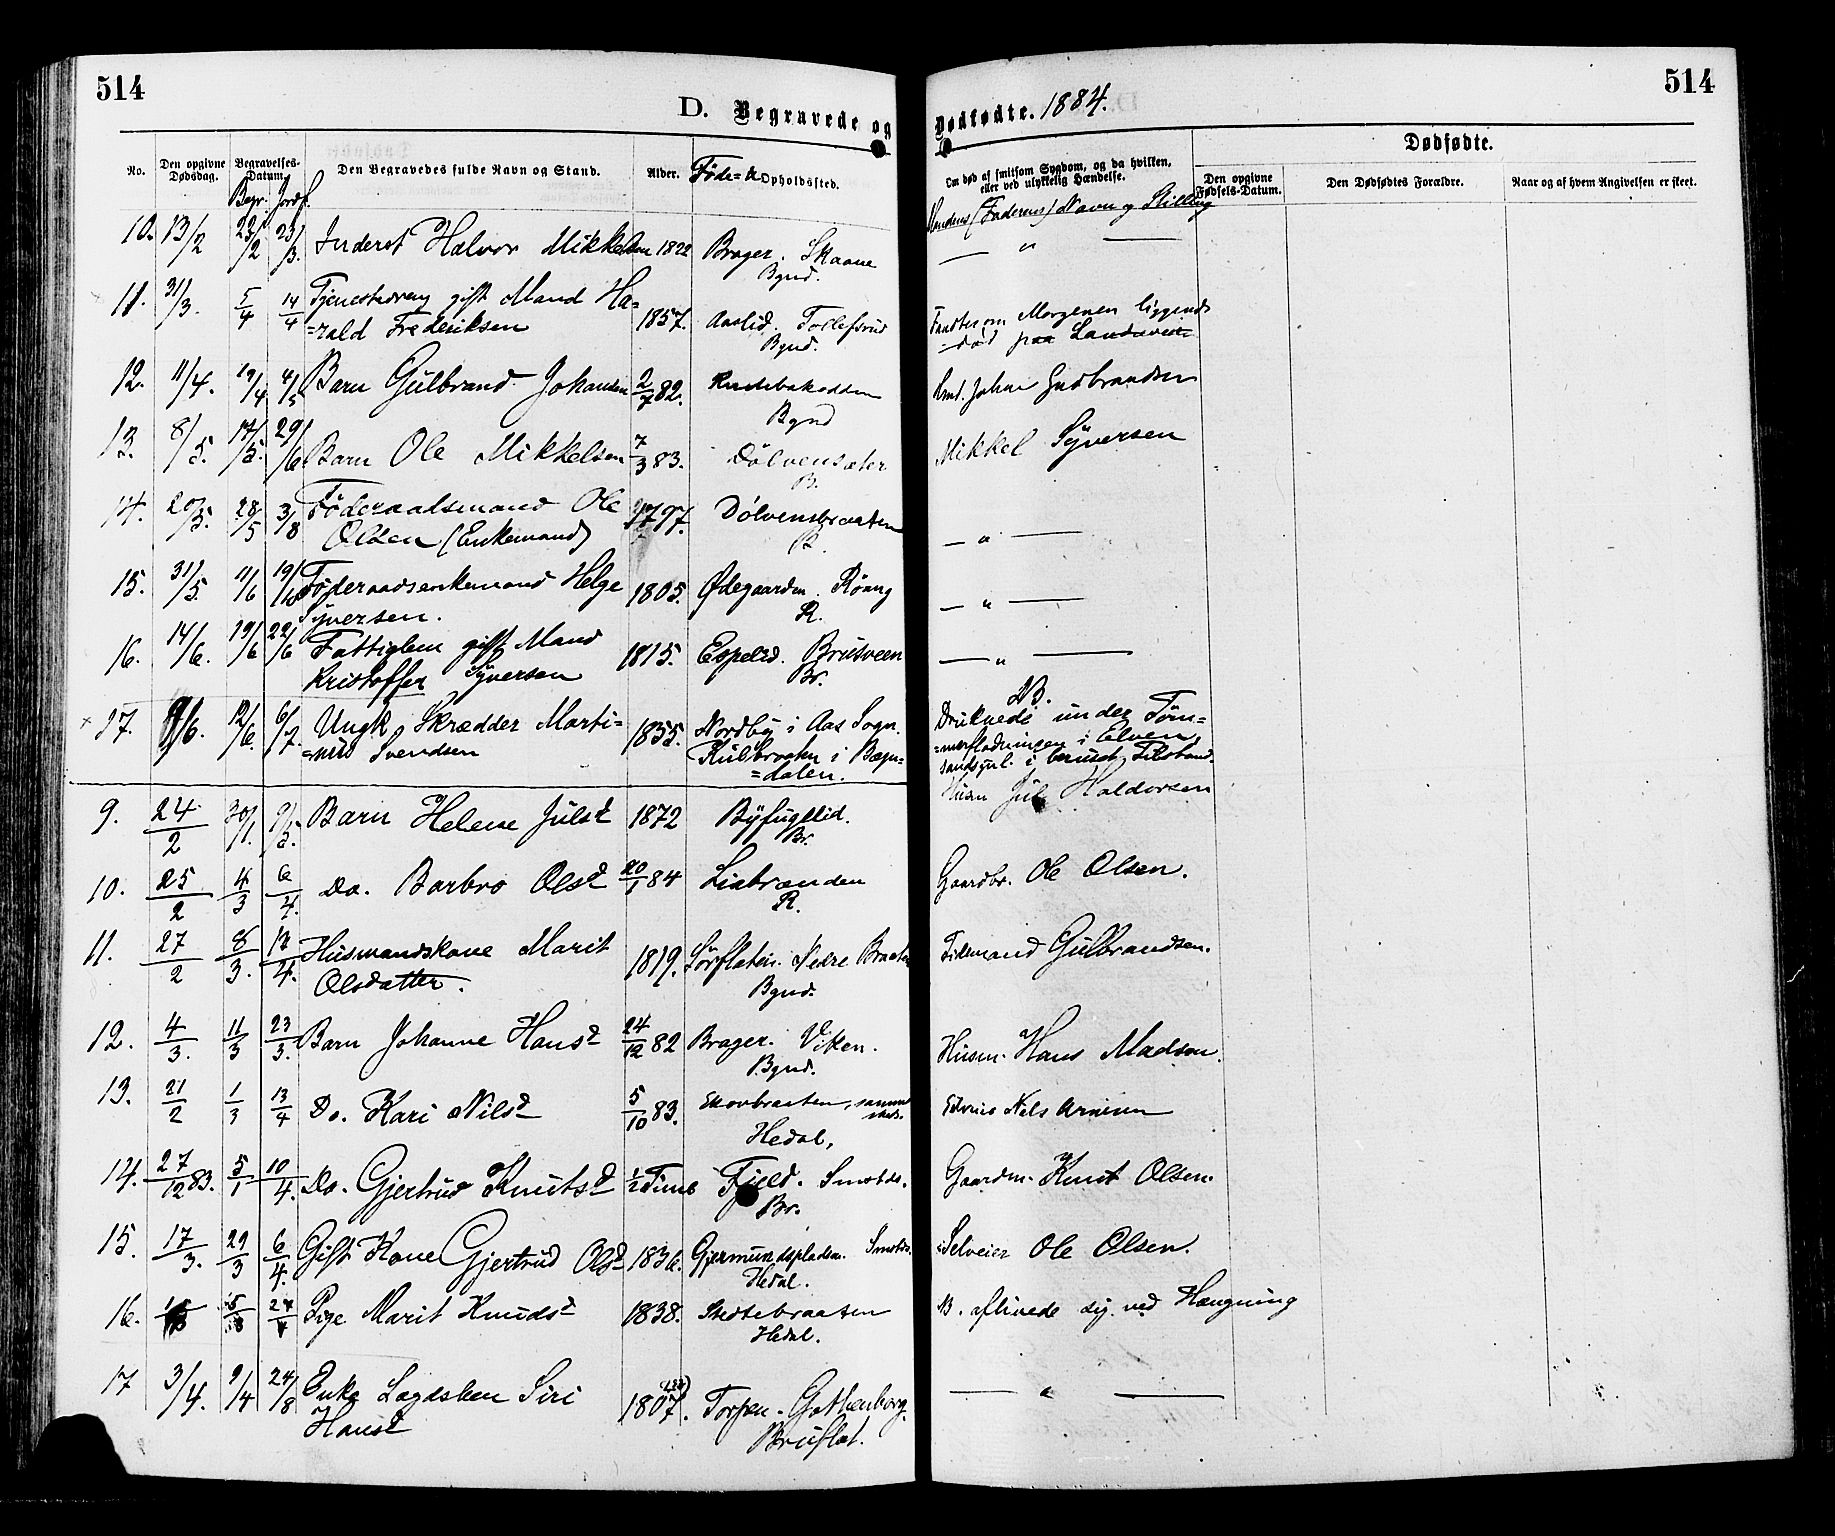 514
514
D. Begravede og Dødfødte. 1884.
No. Den opgivne Dødsdag. Begravelses-Datum. Den Begravedes fulde Navn og Stand. Alder. Føde= & Opholdssted. Om død af smitsom Sygdom, og da hvilken, eller ved ulykkelig Hændelse. Dødfødte.
Den opgivne Fødsels-Datum. Den Dødfødtes Forældre. Naar og af hvem Angivelsen er skeet.
Begr. Jordf. Mandens (Faderens) Navn og Stilling
10. 13/2 23/2 23/3. Inderst Halvor Mikkelsen 1822 Brager. Skaane — " —
Bgnd.
11. 31/3. 5/4 14/4 Tjenestedreng gift Mand Ha=
=rald Frederiksen 1857. Aaslid. Tollefsrud Fandtes om Morgenen liggende
Bgnd. død paa Landevei
12. 11/4. 19/4 4/5 Barn Gulbrand Johansen 2/7 82. Johan Gudbrandsen
Bgnd
13. 8/5. 17/5. 29/6 Barn Ole Mikkelsen 7/3 83. Dølvensæter Mikkel Syversen
B.
14. 20/5. 28/5 3/8 Føderaadsmand Ole
Olsen (Enkemand) 1797. Dølvensbraaten — " —
B.
15. 31/5. 11/6 19/10 Føderaadsenkemand Helge
Syversen. 1805. Ødegaarden. Röang — " —
R.
16. 14/6. 19/6 22/6 Fattiglem gift Mand
Kristoffer Syversen 1815. Espelid. Brusveen — " —
Br.
17. 9/6. 12/6. 6/7. Ungk. Skrædder Marti=
=nus Svendsen 1835. Nordby i Aas Sogn. NB.
Kulbraaten i Bægn= Druknede under Tøm=
=dalen. =merflødningen i Elven,
sandsynl. i beruset Tilstand.
9. 24/2 30/1. 9/5. Barn Helene Julsd 1872 Byfugllid. Husm Jul Haldorsen
Br.
10. 25/2 4/3 6/4. Do. Barbro Olsd 20/1 84 Liabrænden Gaardbr. Ole Olsen.
R.
11. 27/2 8/3. 17/4. Husmandskone Marit
Olsdatter. 1819. Sørflaten. Nedre Braaten Tidemand Gulbrandsen.
Bgnd.
12. 4/3. 11/3 23/3. Barn Johanne Hansd 24/12 82 Brager. Viken. Husm. Hans Madsen.
Bgnd.
13. 21/2 1/3 13/4 Do. Kari Nilsd 5/10 83. Skovbraaten, sammesteds. Nils Arnesen
Hedal,
14. 27/12 83. 5/1 10/4. Do. Gjertrud Knutsd 1/2 Time Fjeld. Smstds. Gaardm. Knut Olsen.
Br.
15. 17/3. 29/3 6/4. Gift Kone Gjertrud Olsd 1836. Gjermundspladsen. Smstds. Selveier Ole Olsen.
Hedal.
16. Pige Marit Knudsd 1838. Stedtebraaten B. aflivede sig ved Hængning
Hedal.
17 3/4. 9/4 24/8 Enke Lægdslem Siri
Hansd 1807. Torpen. Gothenborg. — " —
Bruflat.